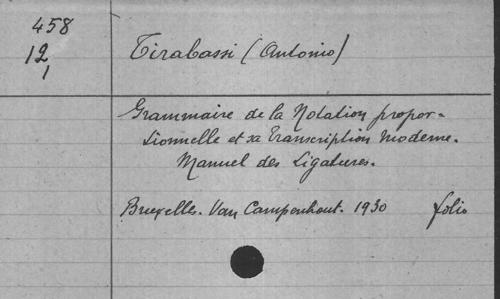 458
12
1
Tirabassi (Antonio)
Grammaire de la Notation propor-
tionnelle et sa transcription moderne.
Manuel des Ligatures.
Bruxelles. Van Campenhout. 1930 folio